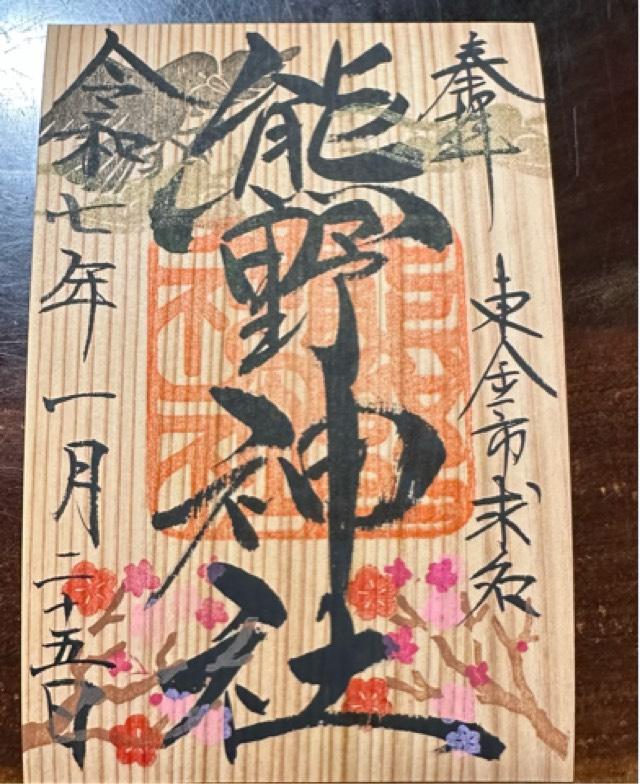 奉拝
東金市求名
熊野神社
令和七年一月二十五日